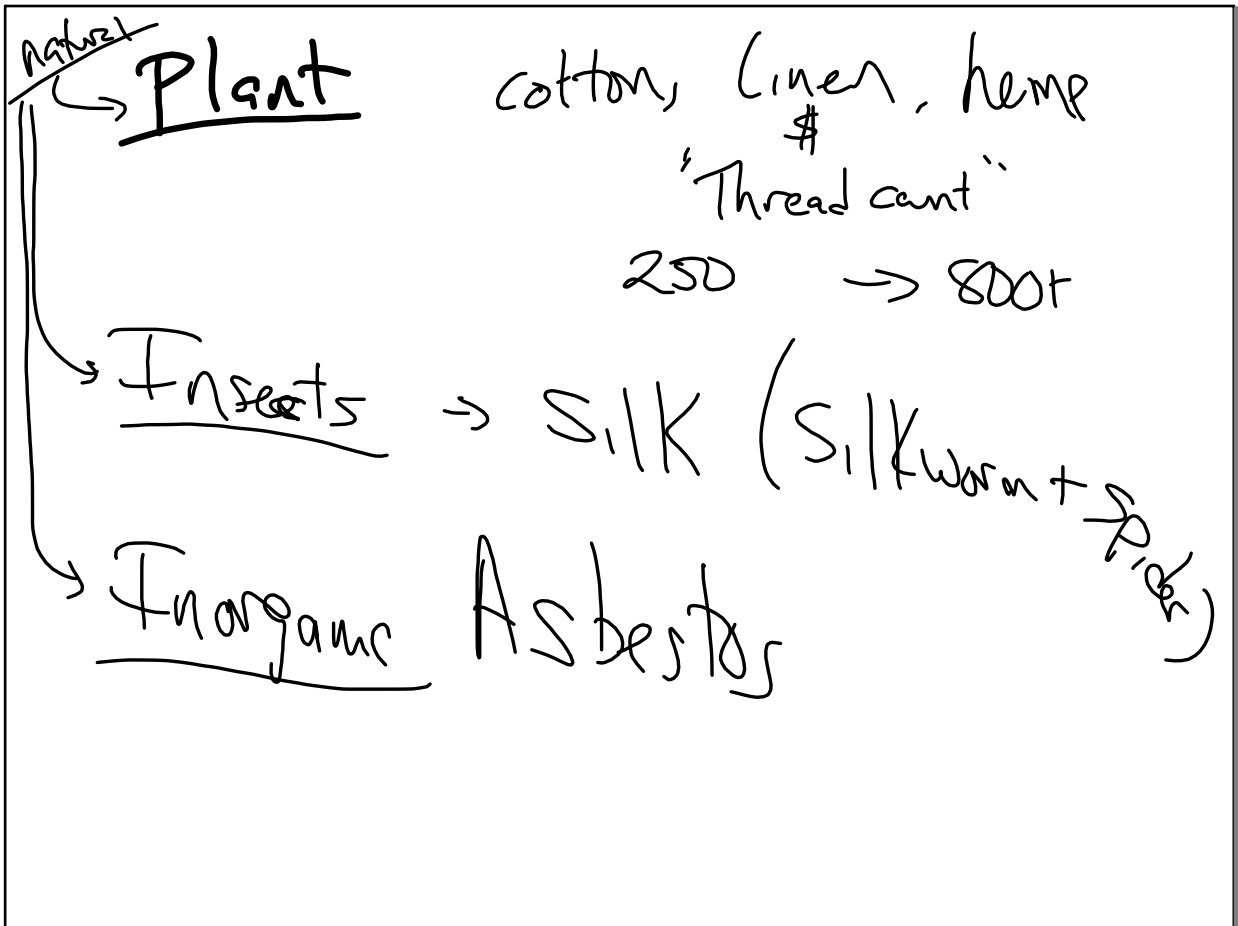 natural
Plant cotton, linen, hemp
$
"Thread count"
250 → 800+
Insects → Silk (Silkworm + Spider)
Inorganic Asbestos